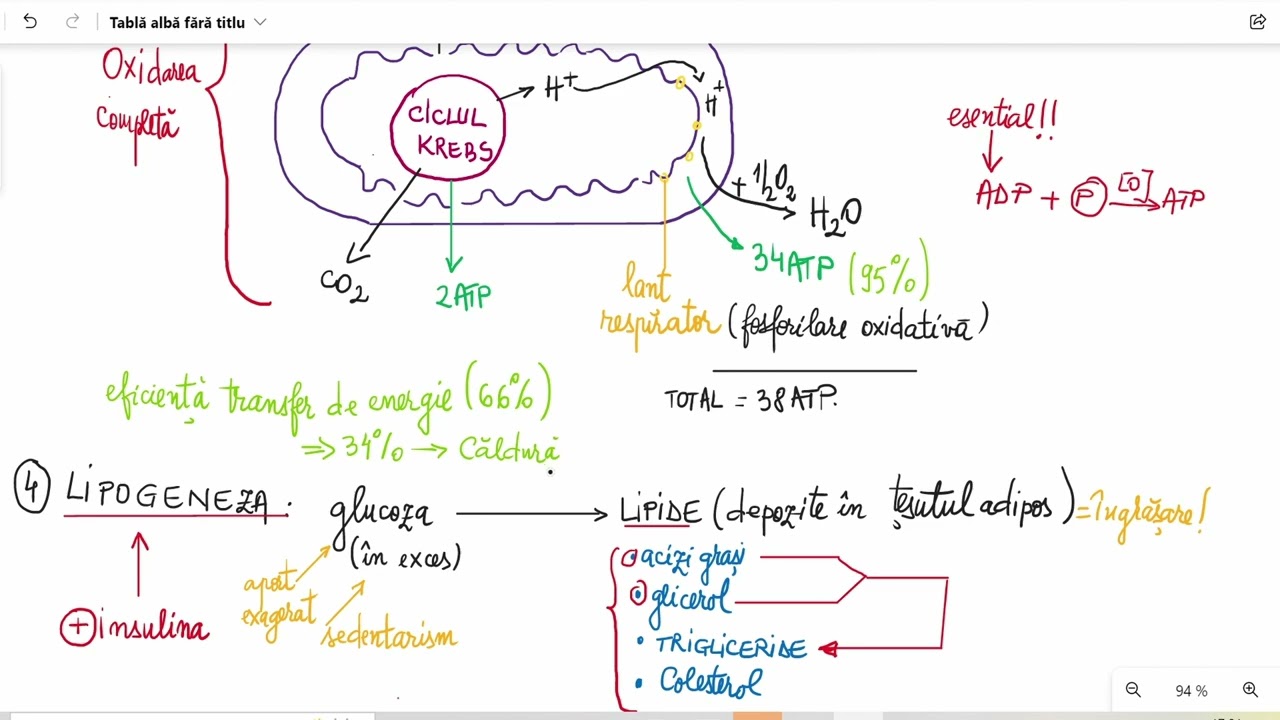 Tablă albă fără titlu
Oxidarea
completă
CICLUL
KREBS
H⁺
H⁺
+ 1/2 O₂
H₂O
CO₂
2ATP
34ATP (95%)
lant
respirator (fosforilare oxidativă)
TOTAL = 38ATP.
esential!!
ADP + P [O] ATP
eficiență transfer de energie (66%)
⇒ 34% → Căldură
④ LIPOGENEZA. glucoza → LIPIDE (depozite în țesutul adipos) = îngrășare!
(în exces)
aport
exagerat
sedentarism
+ insulina
• acizi grași
• glicerol
• TRIGLICERIDE
• Colesterol
94 %